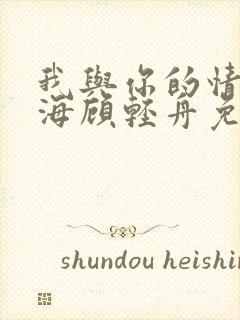 我與你的情
海顧輕舟免
shundou heishin